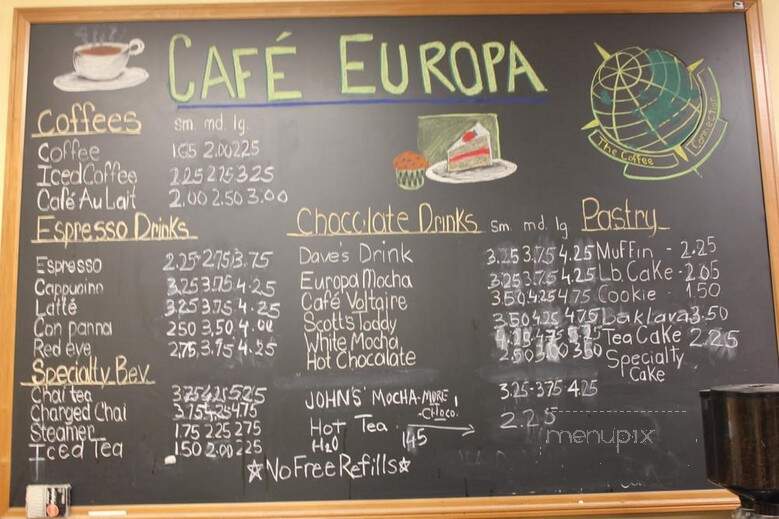 CAFÉ EUROPA
The Coffee Connection
Coffees sm. md. lg.
Coffee 1.65 2.00 2.25
Iced Coffee 2.25 2.75 3.25
Café Au Lait 2.00 2.50 3.00
Espresso Drinks
Espresso 2.25 2.75 3.75
Cappucino 3.25 3.75 4.25
Latté 3.25 3.75 4.25
Con panna 2.50 3.50 4.00
Red eye 2.75 3.75 4.25
Specialty Bev.
Chai tea 3.75 4.25 5.25
Charged Chai 3.75 4.25 4.75
Steamer 1.75 2.25 2.75
Iced Tea 1.50 2.00 2.25
Chocolate Drinks sm md. lg
Dave's Drink 3.25 3.75 4.25
Europa Mocha 3.25 3.75 4.25
Café Voltaire 3.50 4.25 4.75
Scott's Toddy 3.50 4.25 4.75
White Mocha 4.75
Hot Chocolate 2.50 3.00 3.50
JOHN'S' MOCHA-MORE -CHOCO! 3.25-3.75 4.25
Hot Tea 2.25
H2O 1.45
☆No Free Refills☆
Pastry
Muffin - 2.25
Lb Cake - 2.05
Cookie - 1.50
Baklava 3.50
Tea Cake 2.25
Specialty
Cake
menupix